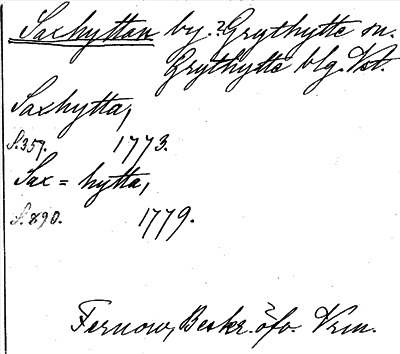 Saxhyttan by. Grythytte sn.
Grythytte blg. Vst.
Saxhytta,
S. 357. 1773.
Sax = hytta,
S. 890. 1779.
Fernow, Beskr. öfv. Vrm.